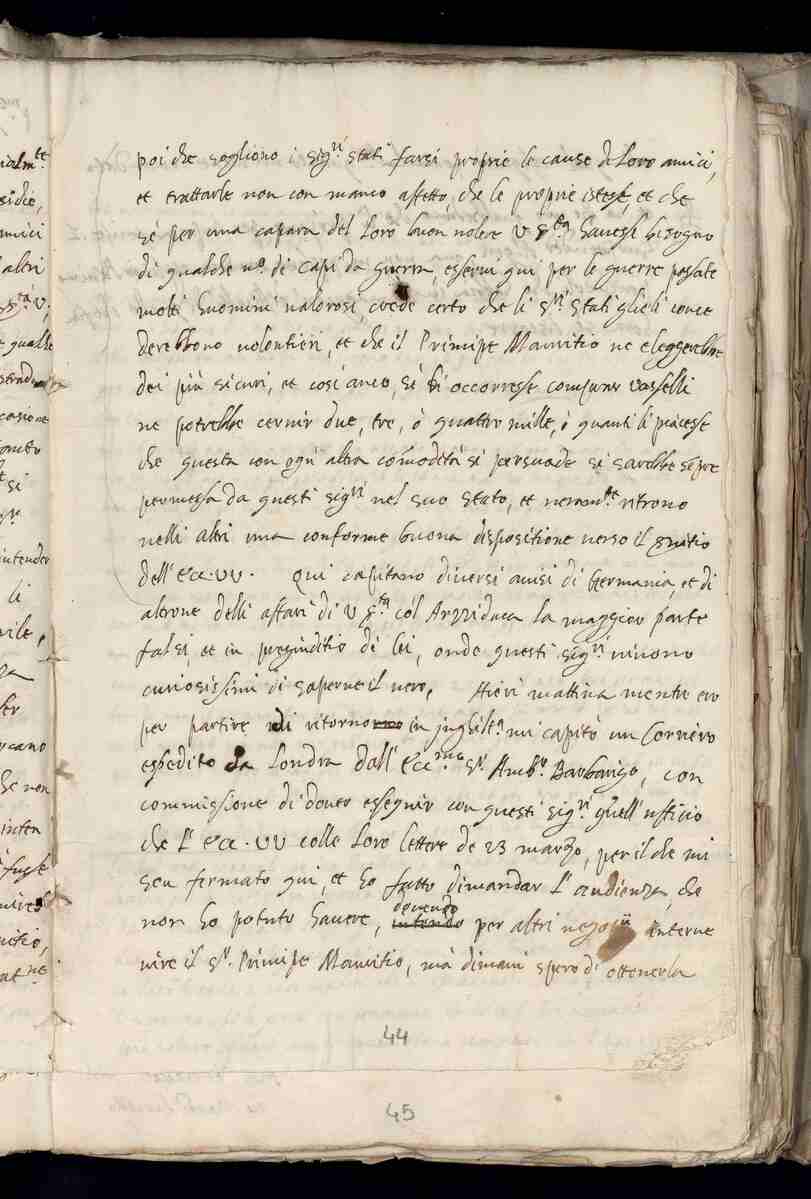 poi che sogliono i sig.ri stati farsi proprie le cause di loro amici,
et trattarle non con manco affetto, che le proprie istesse, et che
se per una capara del loro buon volere V S.tà havesse bisogno
di qualche n.o di capi da guerra, esservi qui per le guerre passate
molti huomini valorosi, crede certo che li S.ri Stati glieli conce
derebbono volontieri, et che il Principe Mauritio ne eleggerebbe
dei più sicuri, et così anco, se li occorresse comprar vasselli
ne potrebbe cernir due, tre, ò quattro mille, ò quanti li piacesse
che questa con ogni altra comodità si persuade si sarebbe sempre
permessa da questi sig.ri nel suo stato, et veram.te ritrovo
nelli altri una conforme buona dispositione verso il servitio
dell' ecc. VV. Qui capitano diversi avisi di Germania, et di
altrove delli affari di V S.tà col Arzzidcca la maggior parte
falsi, et in pregiuditio di lei, onde questi sig.ri vivono
curiosissimi di saperne il vero, Hieri mattina mentre ero
per partire di ritorno in inghilt.a mi capitò un Corriero
espedito da Londra dall' ecc.mo S.r Amb.r Barbarigo, con
commissione di dover esseguir con questi sig.ri quell' ufficio
che l' ecc. VV colle loro lettere de 23 marzo, per il che mi
son fermato qui, et ho fatto dimandar l' audienza, che
non ho potuto havere, dovendo per altri negotii interve
nire il S.r Principe Mauritio, mà dimani spero di ottenerla
44
45